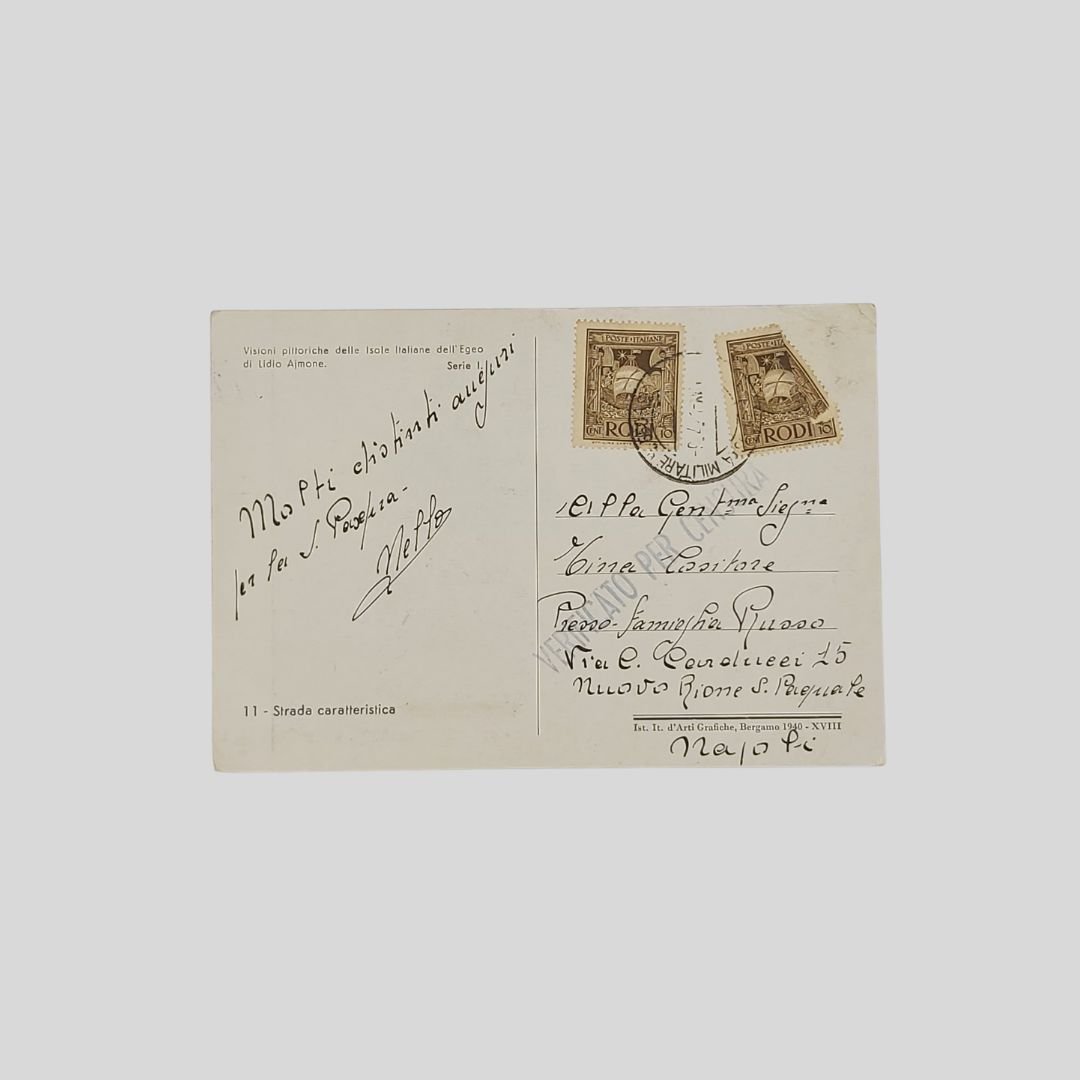 Visioni pittoriche delle Isole Italiane dell'Egeo
di Lidio Ajmone. Serie I.
Molti distinti auguri
per la S. Pasqua-
Nello
11 - Strada caratteristica
POSTE ITALIANE
CENT RODI 10
POSTE ITA
CENT RODI 10
MILITARE
VERIFICATO PER CENSURA
Alla Gent.ma Sig.na
Tina Cositore
Presso- famiglia Russo
Via C. Carducci 15
Nuovo Rione S. Pasquale
Ist. It. d'Arti Grafiche, Bergamo 1940 - XVIII
Napoli